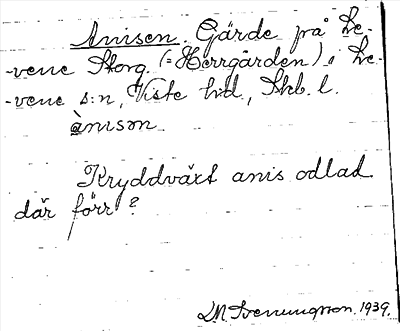 Anisen. Gärde på Le-
-vene Storg. (=Herrgården), i Le-
-vene s:n, Viste h:d, Skb. l.
ànisən
Kryddväxt anis odlad
där förr?
D.N. Svenungsson. 1939.